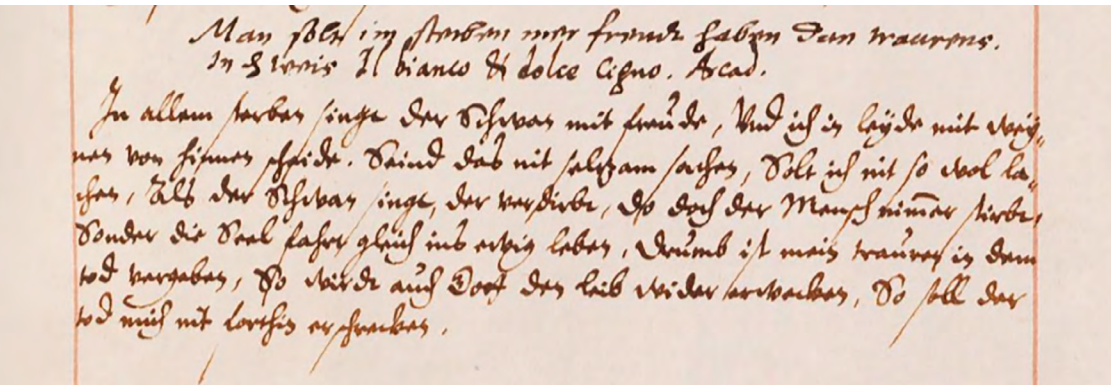 Man solt im sterben mer freudt haben dan traurens.
In d weis Il bianco & dolce Cigno. Arcad.
In allem sterben singt der Schwan mit freude, Vnd ich in leyde mit wey-
nen von hinnen scheide. Seind das nit seltzam sachen, Solt ich nit so wol la-
chen, Als der Schwan singt, der verdirbt, do doch der Mensch nim̄er stirbt,
Sonder die Seel fahrt gleich ins ewig leben, Drumb ist mein trauren in dem
tod vergeben, So wirdt auch Gott den leib wider erwecken, So soll der
tod mich nit forthin erschrecken.